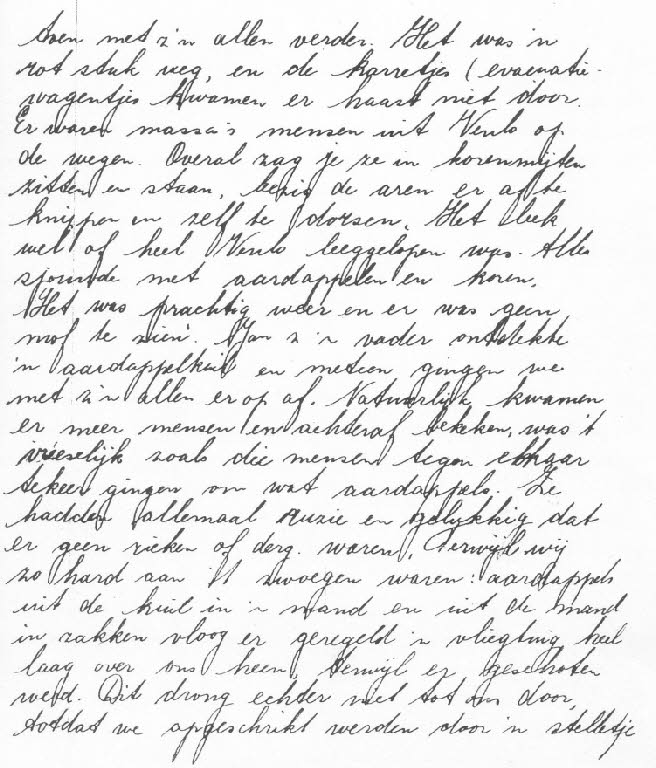 toen met z'n allen verder. Het was 'n
rot stuk weg, en de karretjes (evacuatie-
wagentjes kwamen er haast niet door.
Er waren massa's mensen uit Venlo op
de wegen. Overal zag je ze in korenmijten
zitten en staan, bezig de aren er af te
knippen en zelf te dorsen. Het leek
wel of heel Venlo leeggelopen was. Alles
sjouwde met aardappelen en koren.
Het was prachtig weer en er was geen
mof te zien. Jan z'n vader ontdekte
'n aardappelkuil en meteen gingen we
met z'n allen er op af. Natuurlijk kwamen
er meer mensen en achteraf bekeken, was 't
vreeselijk zoals die mensen tegen elkaar
tekeer gingen om wat aardappels. Ze
hadden allemaal ruzie en gelukkig dat
er geen zieken of derg. waren. Terwijl wij
zo hard aan 't zwoegen waren: aardappels
uit de kuil in 'n mand en uit de mand
in zakken vloog er geregeld 'n vliegting heel
laag over ons heen, terwijl er geschoten
werd. Dit drong echter niet tot ons door,
totdat we opgeschrikt werden door 'n stelletje